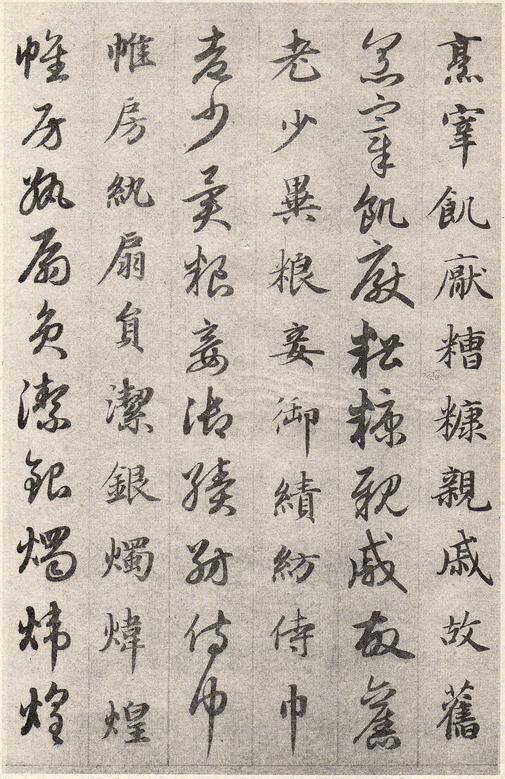 烹宰飢厭糟糠親戚故舊
烹宰飢厭糟糠親戚故舊
老少異粮妾御績紡侍巾
老少異粮妾御績紡侍巾
帷房紈扇員潔銀燭煒煌
帷房紈扇員潔銀燭煒煌